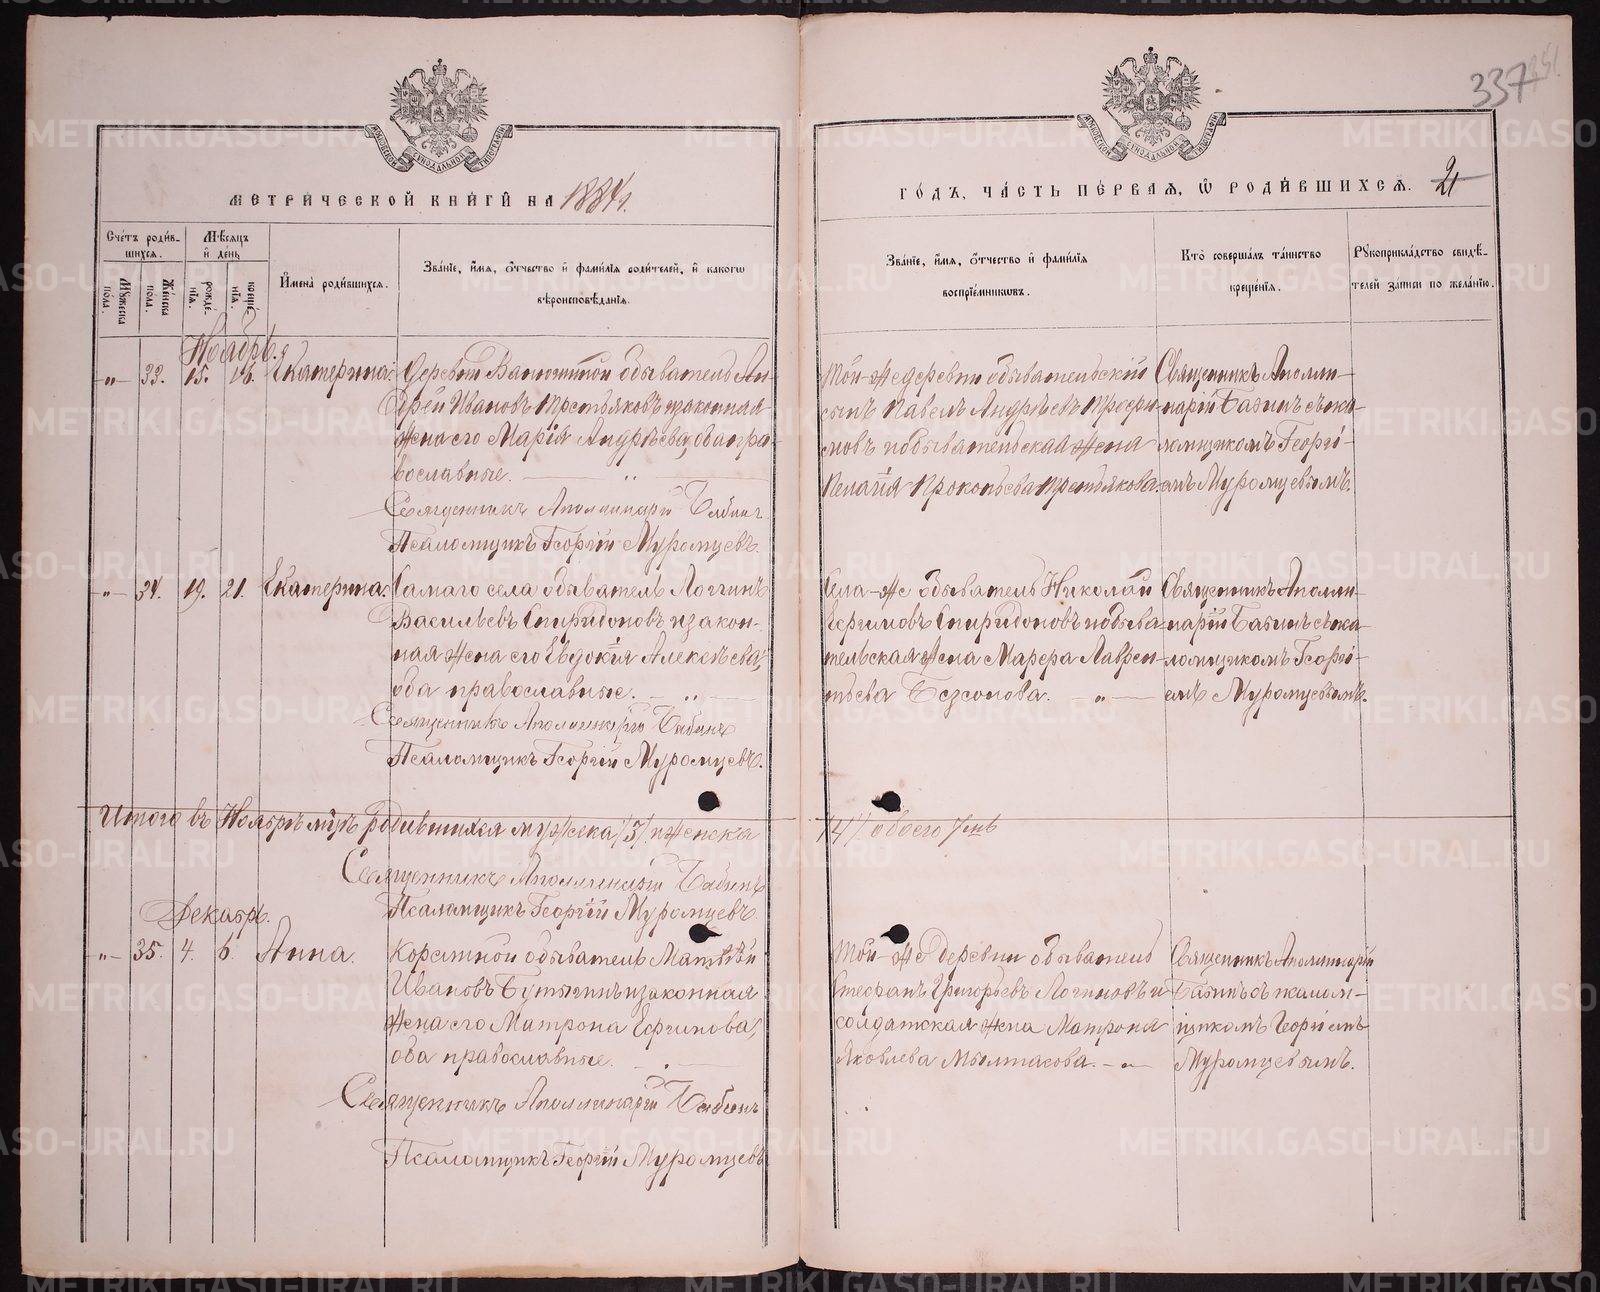 337
МЕТРИЧЕСКОЙ КНИГИ НА 1884 г.
ГОДЪ, ЧАСТЬ ПЕРВАЯ, Ѡ РОДИВШИХСЯ. 21
Счетъ родившихся.
Мужеска пола.
Женска пола.
Мѣсяцъ и день
рожденія.
крещенія.
Имена родившихся.
Званіе, имя, отчество и фамилія родителей, и какого вѣроисповѣданія.
Званіе, имя, отчество и фамилія воспріемниковъ.
Кто совершалъ таинство крещенія.
Рукоприкладство свидѣтелей записи по желанію.
Ноябрь.
-"- 33. 15. 16. Екатерина.
Деревни обыватель Ан-
дрей Ивановъ Третьяковъ и законная
жена его Марія Андрѣева, оба пра-
вославные.
Священникъ Аполлинарій Бабинъ
Псаломщикъ Георгій Муромцевъ.
Той-же деревни обывательскій
сынъ Павелъ Андрѣевъ
и обывательская жена
Пелагія Прокопьева Третьякова.
Священникъ Аполли-
нарій Бабинъ съ пса-
ломщикомъ Георгі-
емъ Муромцевымъ.
-"- 34. 19. 21. Екатерина.
Самаго села обыватель Логгинъ
Васильевъ Спиридоновъ и закон-
ная жена его Евдокія Алексѣева,
оба православные.
Священникъ Аполлинарій Бабинъ
Псаломщикъ Георгій Муромцевъ.
Села-же обыватель Николай
Ефимовъ Спиридоновъ и обыва-
тельская жена Лаврен-
тьева Безсонова.
Священникъ Аполли-
нарій Бабинъ съ пса-
ломщикомъ Георгі-
емъ Муромцевымъ.
Итого въ Ноябрѣ мцѣ родившихся мужска /3/ и женска
/4/ обоего 7мь
Священникъ Аполлинарій Бабинъ
Псаломщикъ Георгій Муромцевъ
Декабрь.
-"- 35. 4. 6. Анна.
обыватель Матвѣй
Ивановъ Бутыгинъ и законная
жена его Матрона Ефимова,
оба православные.
Священникъ Аполлинарій Бабинъ
Псаломщикъ Георгій Муромцевъ
Той-же деревни обыватель
Стефанъ Григорьевъ Логиновъ и
солдатская жена Матрона
Яковлева
Священникъ Аполлинарій
Бабинъ съ псалом-
щикомъ Георгіемъ
Муромцевымъ.
METRIKI.GASO-URAL.RU